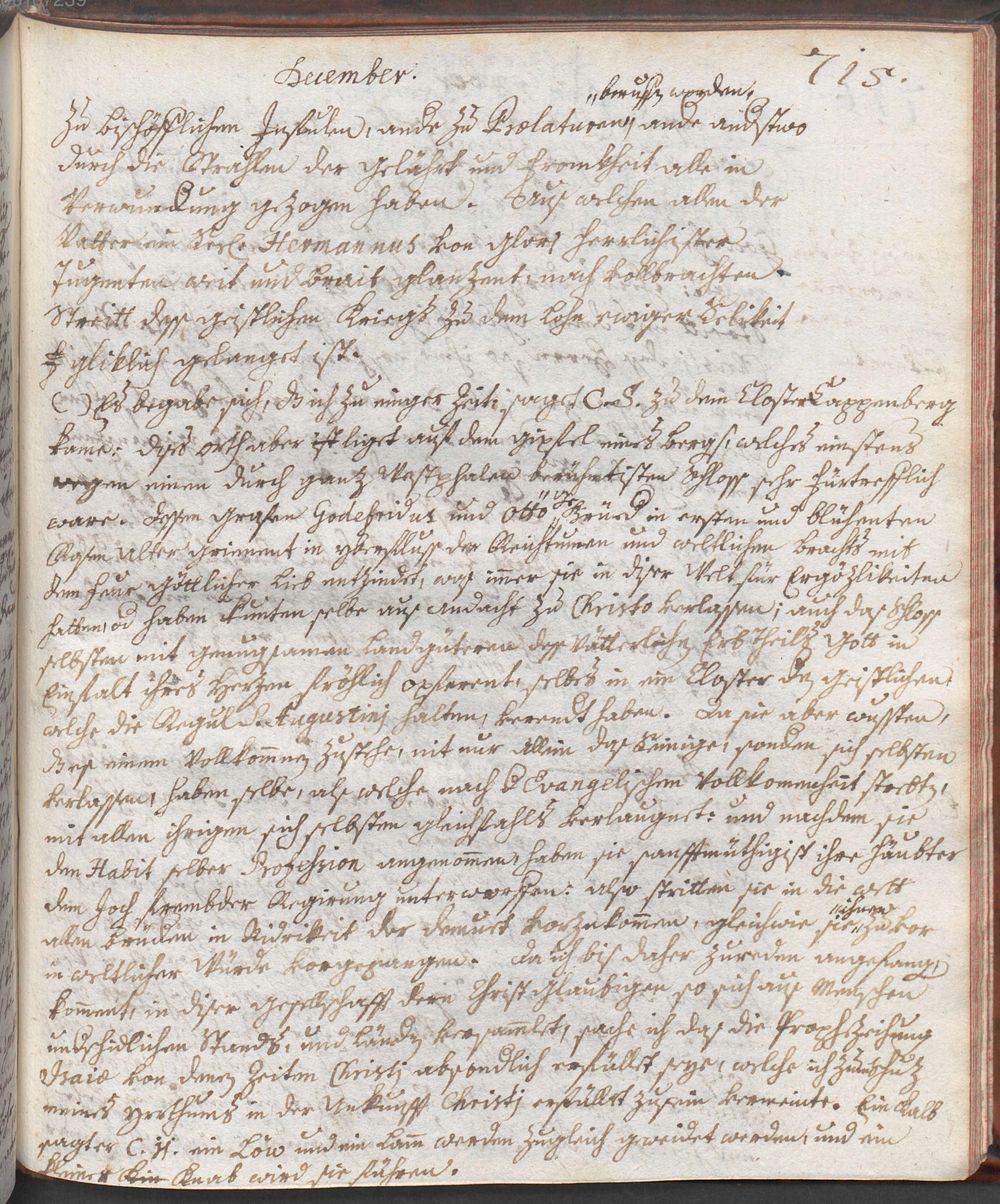 December. 715.
„beruffen worden,
zu bischöfflichen Insulen, ande zu Prælaturen„ ande andstwo
durch die Strahlen der gelährt und fromkheit alle in
Verwunderung gezogen haben. Aus welchen allen der
Vatter ein Hermannus von glori herrlichister
Tugenten weit und brait glantzent, nach vollbrachten
Streitt dess geistlichen Kriegs zu dem Lohn ewiger Selikeit
gliklich gelanget ist.
(-) Es begabe sich, das ich zu einiger Zeit, saget C. S. zu dem Closter Cappenberg
kame: dises orth aber ist liget auf dem gipfel eines bergs, welches einstens
wegen einen durch gantz Westphalen berühmtisten Schloss sehr fürtrefflich
ware. dessen grafen Godefridus und Otto gebrüed in ersten und blühenten
Rosen alter grienent in yberfluss der Reichtumen und weltlichen brachts mit
dem feur göttlicher lieb entzindet, was immer sie in diser Welt für Ergözlikeiten
hatten, od haben kunten selbe aus andacht zu Christo verlassen; auch das Schloss
selbsten mit genugsamen landgüteren dess vätterlichen Erbtheils Gott in
Einfalt ihres hertzen fröhlich opferent, selbes in ein Closter der geistlichen
welche die Regul S. Augustinj halten, verendt haben. Da sie aber wussten,
das es einem Vollkommnen zustehe, nit nur allein das Seinige, sonden sich selbsten
verlassen, haben selbe, als welche nach d Evangelischen Vollkommenheit strebten,
mit allen ihrigen sich selbsten gleichfahls verlaugnet: und nachdem sie
den Habit selber Profession angenommen, haben sie sanfftmüthigist ihre häubter
dem Joch frembder Regirung unterworffen: also stritten sie in die wett
allen brüeden in Nidrikeit der demuet vorzukommen, gleichwie sie „ihnen„ zuvor
in weltlicher Würde vorgegangen. da ich bis daher zureden angefangen,
komment, in diser gesellschafft deren Christglaubigen so sich aus Menschen
undschidlichen Stands, und länder versammlet, sache ich das die Prophezeihung
Isaiæ von denen Zeiten Christj absondlich erfüllet seye, welche ich zum schutz
meines yrrthums in der Ankunfft Christj erfüllet zusein vermeinte. Ein kalb
sagter C. 11. ein Löw und ein lamm werden zugleich gweidet werden, und ein
kleiner Knab wird sie führen.